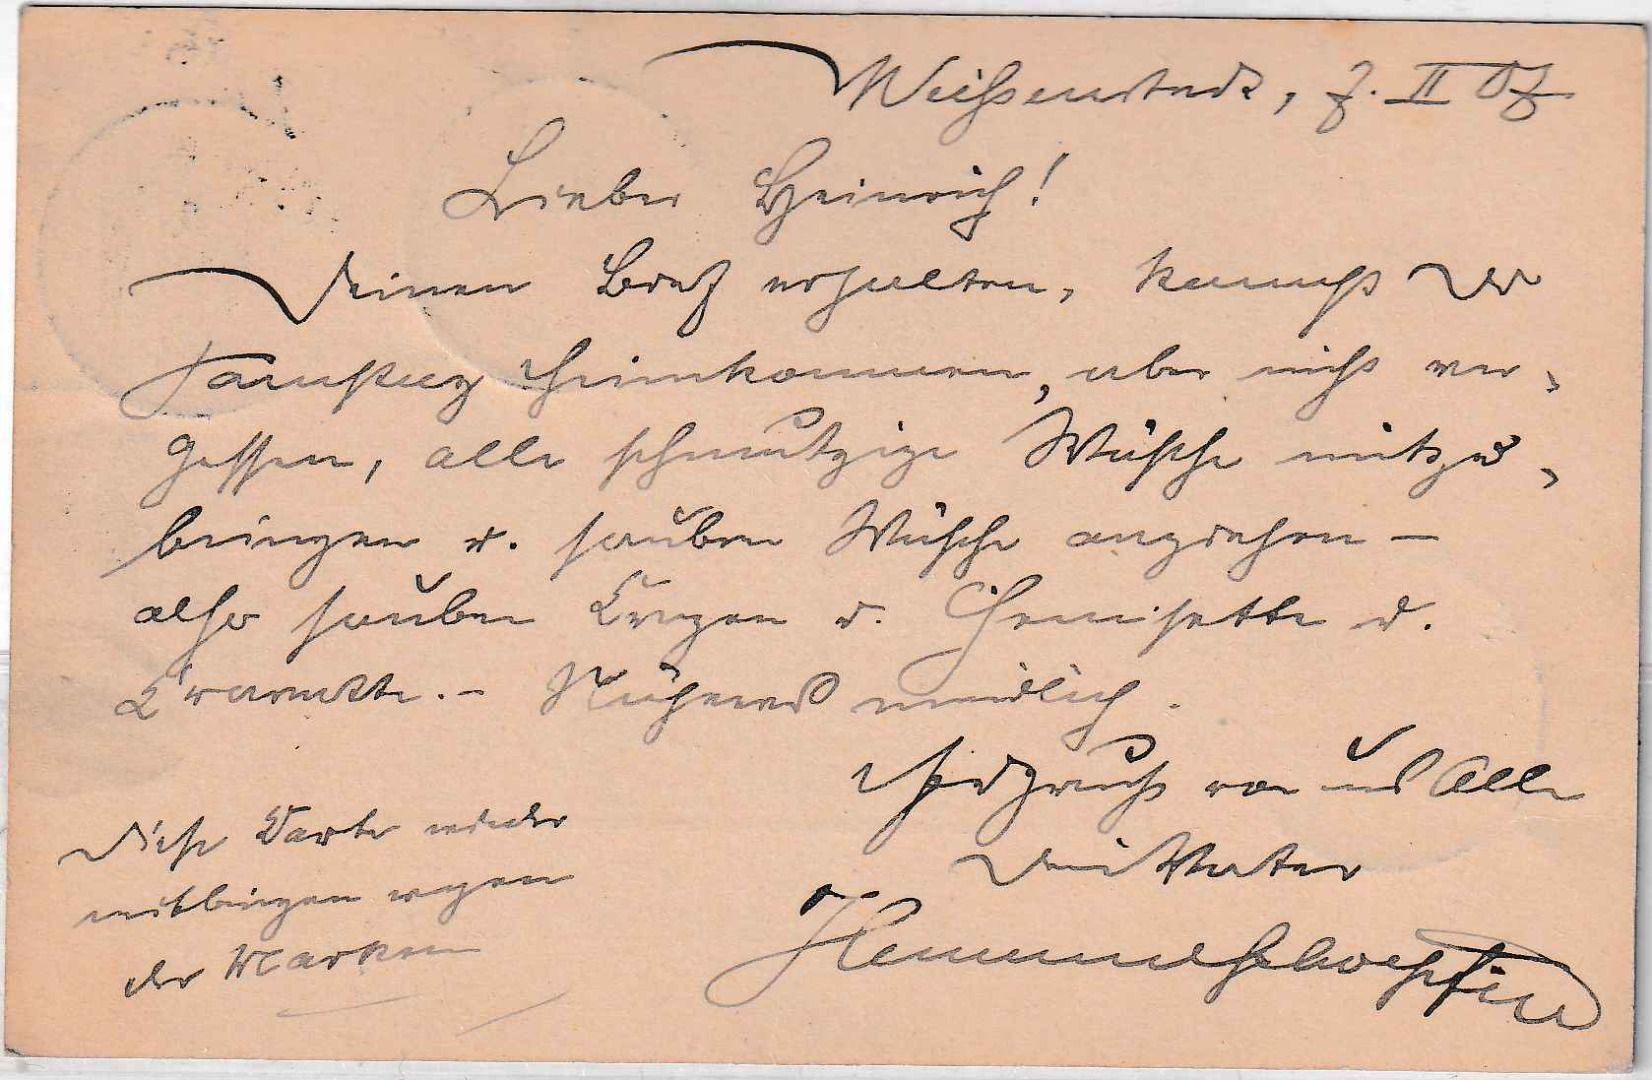 Weißenstadt, 7. II 07
Lieber Heinrich!
Deinen Brief erhalten, kannst Du
Samstag heimkommen, aber nicht ver-
gessen, alle schmutzige Wäsche mitzu-
bringen u. saubere Wäsche anziehen –
also saubere Kragen u. Chemisette u.
Krawatte. – Näheres mündlich.
Herzgruß von uns Alle
Dein Vater
Diese Karte wieder
mitbringen wegen
der Marken